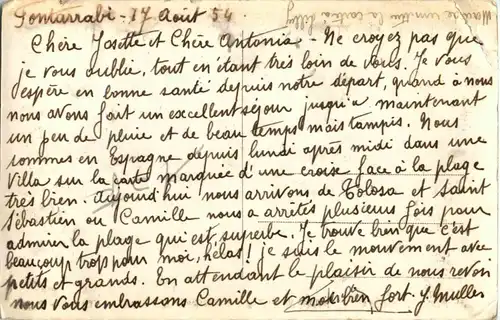 Fontarrabi - 17 Août 54
Chère Josette et Chère Antonia - Ne croyez pas que
je vous oublie, tout en étant très loin de vous. Je vous
espère en bonne santé depuis notre départ, quand à nous
nous avons fait un excellent séjour jusqu'a maintenant
un peu de pluie et de beau temps mais tampis. Nous
sommes en Espagne depuis lundi après midi dans une
Villa sur la carte marquée d'une croise face à la plage
très bien. Aujourd'hui nous arrivons de Tolosa et Saint
Sébastien ou Camille nous a arrêtés plusieurs fois pour
admirer la plage qui est superbe. Je trouve bien que c'est
beaucoup trop pour moi, hélas! je suis le mouvement avec
petits et grands. En attendant le plaisir de nous revoir
nous vous embrassons Camille et moi bien fort. Y. Muller